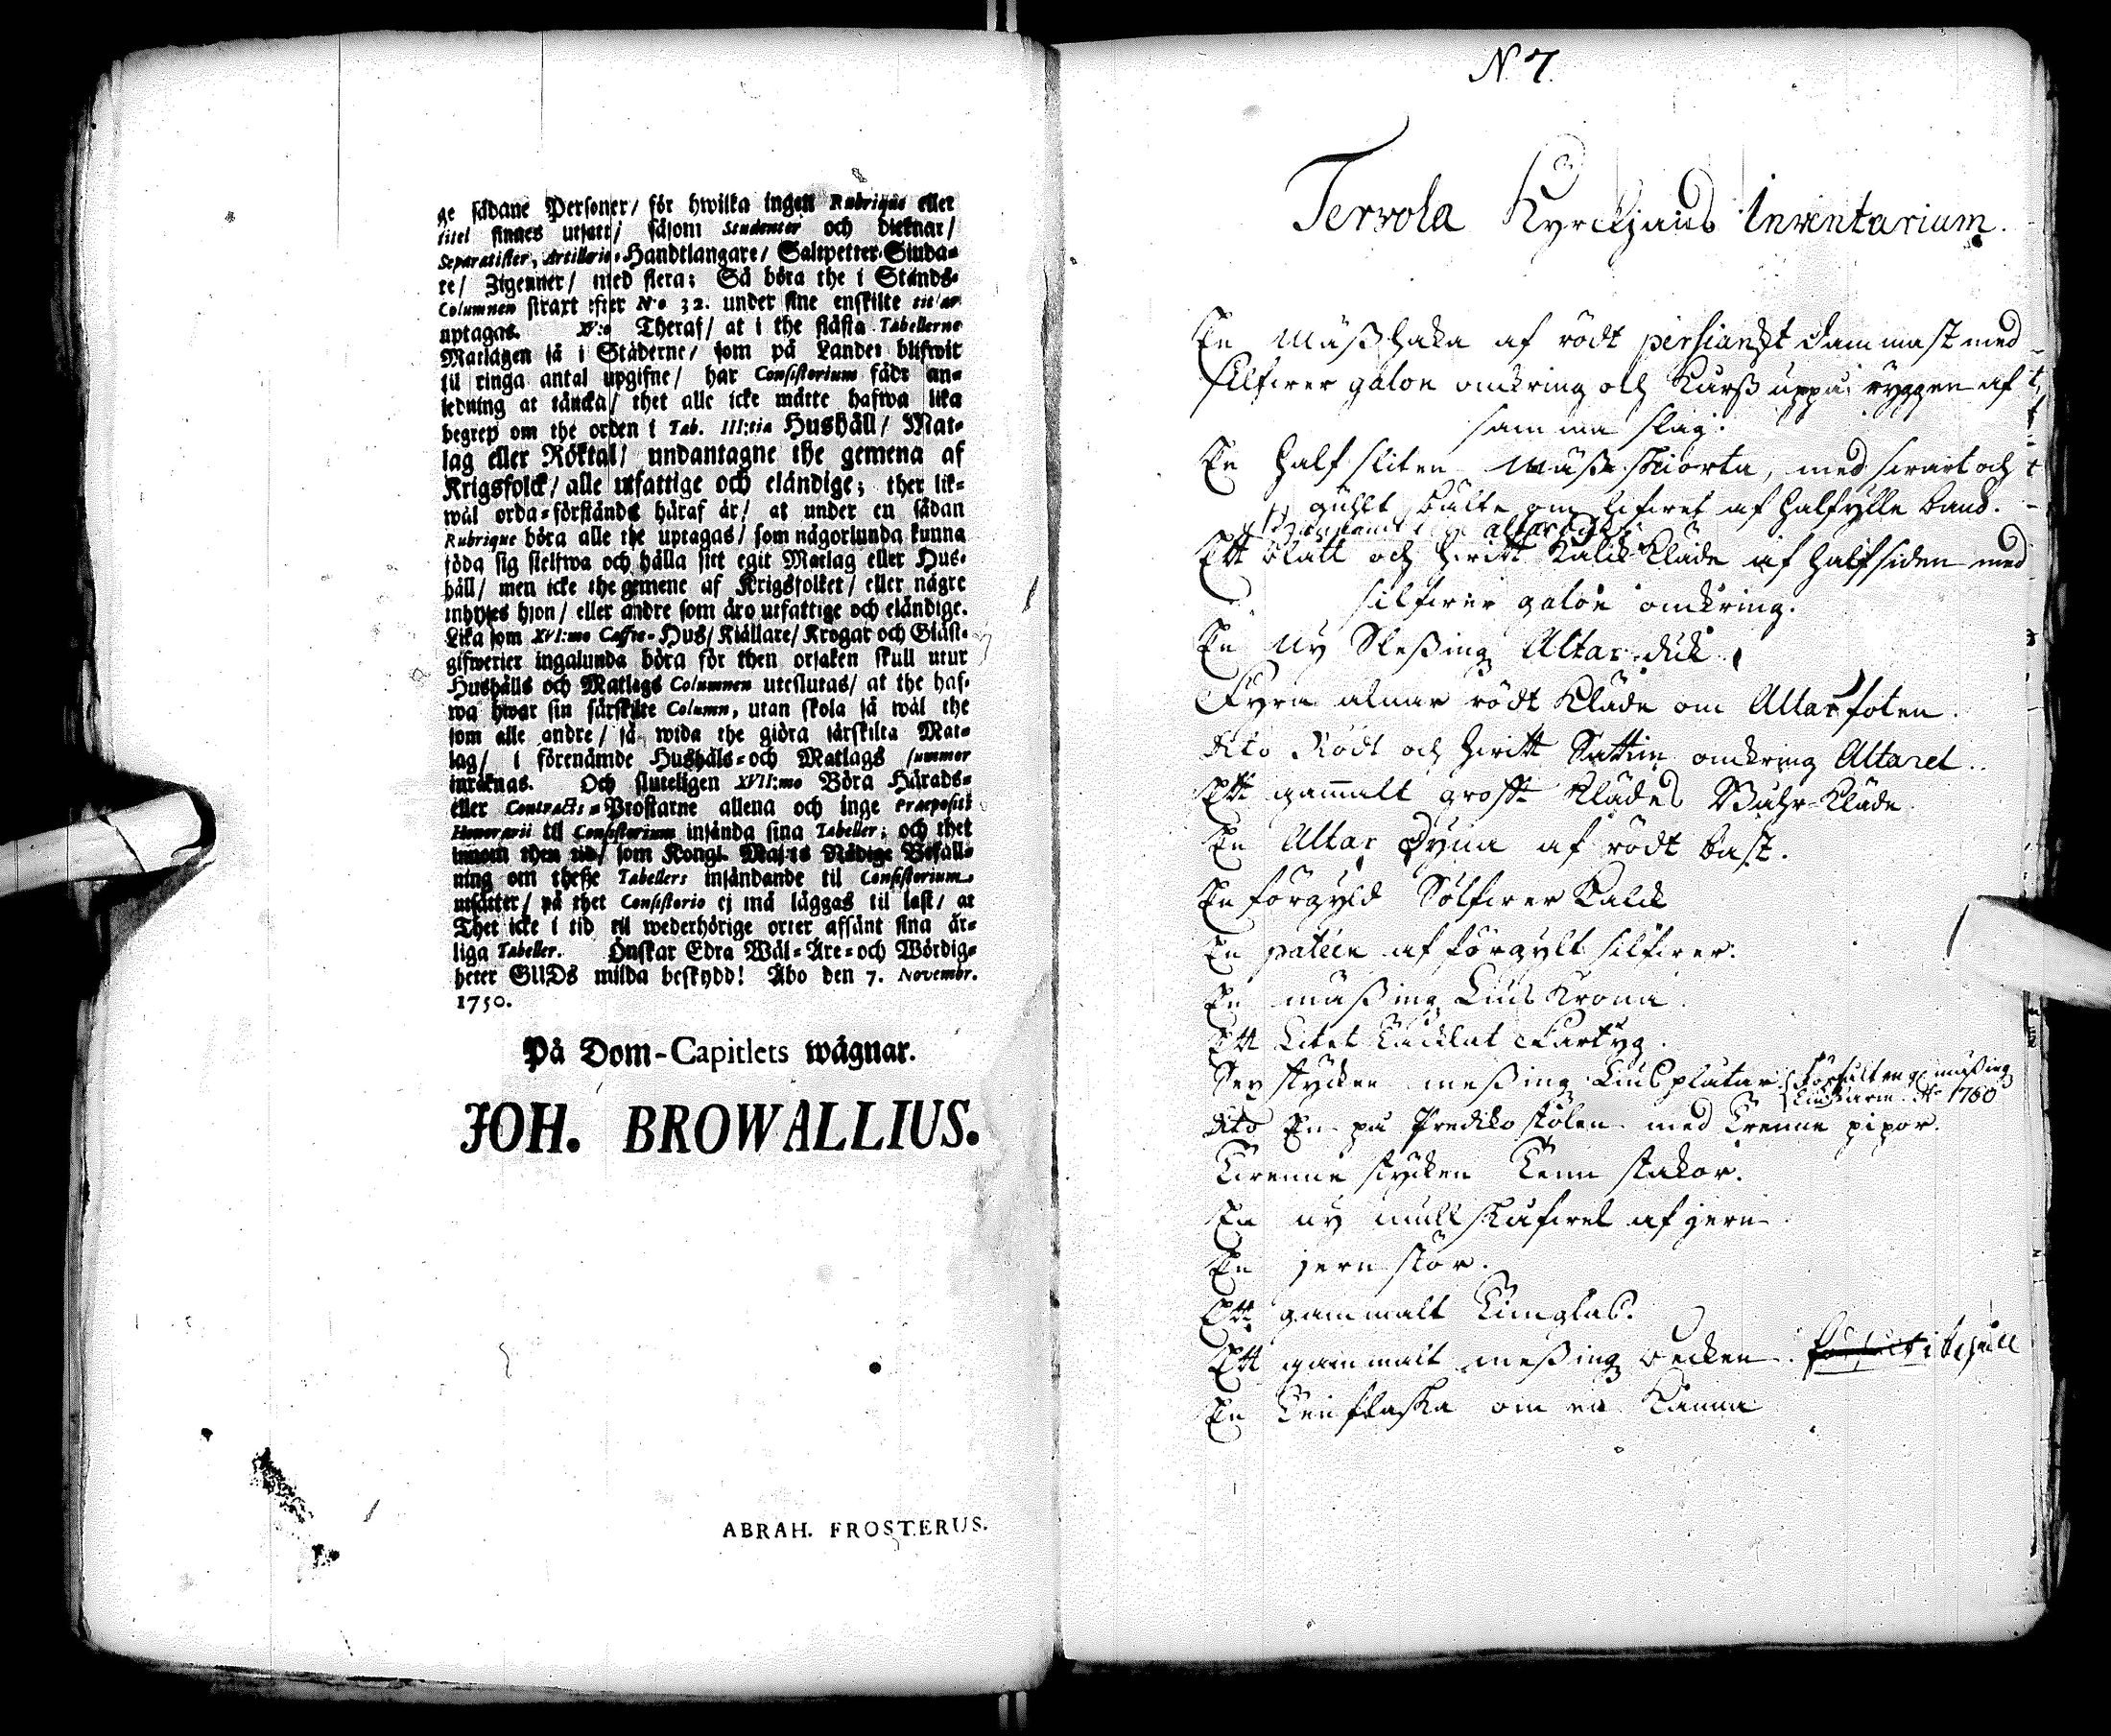 ge sådane Personer/ för hwilka ingen Rubrique eller
titel finnes utsatt/ såsom Studenter och dieknar/
Separatister, Artillerie-Handtlangare/ Saltpetter-Siuda-
re/ Zigenner/ med flera: Så böra the i Stånds-
Columnen straxt efter N:o 32. under sine enskilte titlar
uptagas. XV:o Theraf/ at i the flästa Tabellerne
Matlagen så i Städerne/ som på Landet blifwit
til ringa antal upgifne/ har Consistorium fådt an-
ledning at täncka/ thet alle icke mätte hafwa lika
begrep om the orden i Tab. III:tia Hushåll/ Mat-
lag eller Röktal/ undantagne the gemena af
Krigsfolck/ alle utfattige och eländige; ther lik-
wäl orda-förstånds häraf är/ at under en sådan
Rubrique böra alle the uptagas/ som någorlunda kunna
föda sig sielfwa och hålla sitt egit Matlag eller Hus-
håll/ men icke the gemene af Krigsfolket/ eller någre
inhyses hjon/ eller andre som äro utfattige och eländige.
Lika som XVI:mo Caffre-Hus/ Kiällare/ Krogar och Gäst-
gifwerier ingalunda böra för then orsaken skull utur
Hushålls och Matlags Columnen uteslutas/ at the haf-
wa hwar sin särskilte Column, utan skola så wäl the
som alle andre/ så wida the giöra särskilta Mat-
lag/ i förenämde Hushåls- och Matlags summor
inräknas. Och sluteligen XVII:mo Böra Härads-
eller Contracts-Prostarne allena och inge Praepositi
Honorarii til Consistorium insända sina Tabeller; och thet
innom then tid/ som Kongl. Maj:ts Nådige Befall-
ning om theße Tabellers insändande til Consistorium
utsätter/ på thet Consistorio ej må läggas til last/ at
Thet icke i tid til wederhörige orter afsänt sina år-
liga Tabeller. Önskar Edra Wäl-Äre- och Wördig-
heter GUDs milda beskydd! Åbo den 7. Novembr.
1750.
På Dom-Capitlets wägnar.
JOH. BROWALLIUS.
ABRAH. FROSTERUS.
N 7.
Tervola Kyrckjans Inventarium.
En Mäßhaka af rödt persianskt dammast med
silfwer galon omkring och Kurß uppå ryggen af
samma slag.
En half sliten Mäße skiorta, med swart och
guhlt bälte om lifwet af halfylle band.
altar
Ett blått och hwitt Kalk Kläde af halfsiden med
silfwer galon omkring.
En ny Sleßing Altar duk.
Fyra alnar rödt Kläde om Altarfoten.
dito Rödt och hwitt Sattin omkring Altaret.
Ett gammalt grofft Klädes Båhr-Kläde
En Altar Dyna af rödt bast.
En förgyld Sölfwer Kalck
En patéen af förgylt silfwer.
En mäßing Lius Krona.
Ett Litet Fartyg.
Sex stycken meßing Lius plåtar mäßing
Liusarm A:o 1760
dito En på Prediko stolen med Trenne pipor.
Twenne stycken Tenn stakor.
En ny mullskufwel af jern
En jern stör.
Ett gammalt Timglas.
Ett gammalt meßing becken.
En Tenflaska om en Kanna